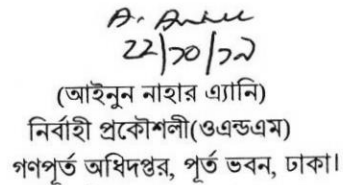 22/১০/১৯
(আইনুন নাহার এ্যানি)
নির্বাহী প্রকৌশলী(ওএন্ডএম)
গণপূর্ত অধিদপ্তর, পূর্ত ভবন, ঢাকা।